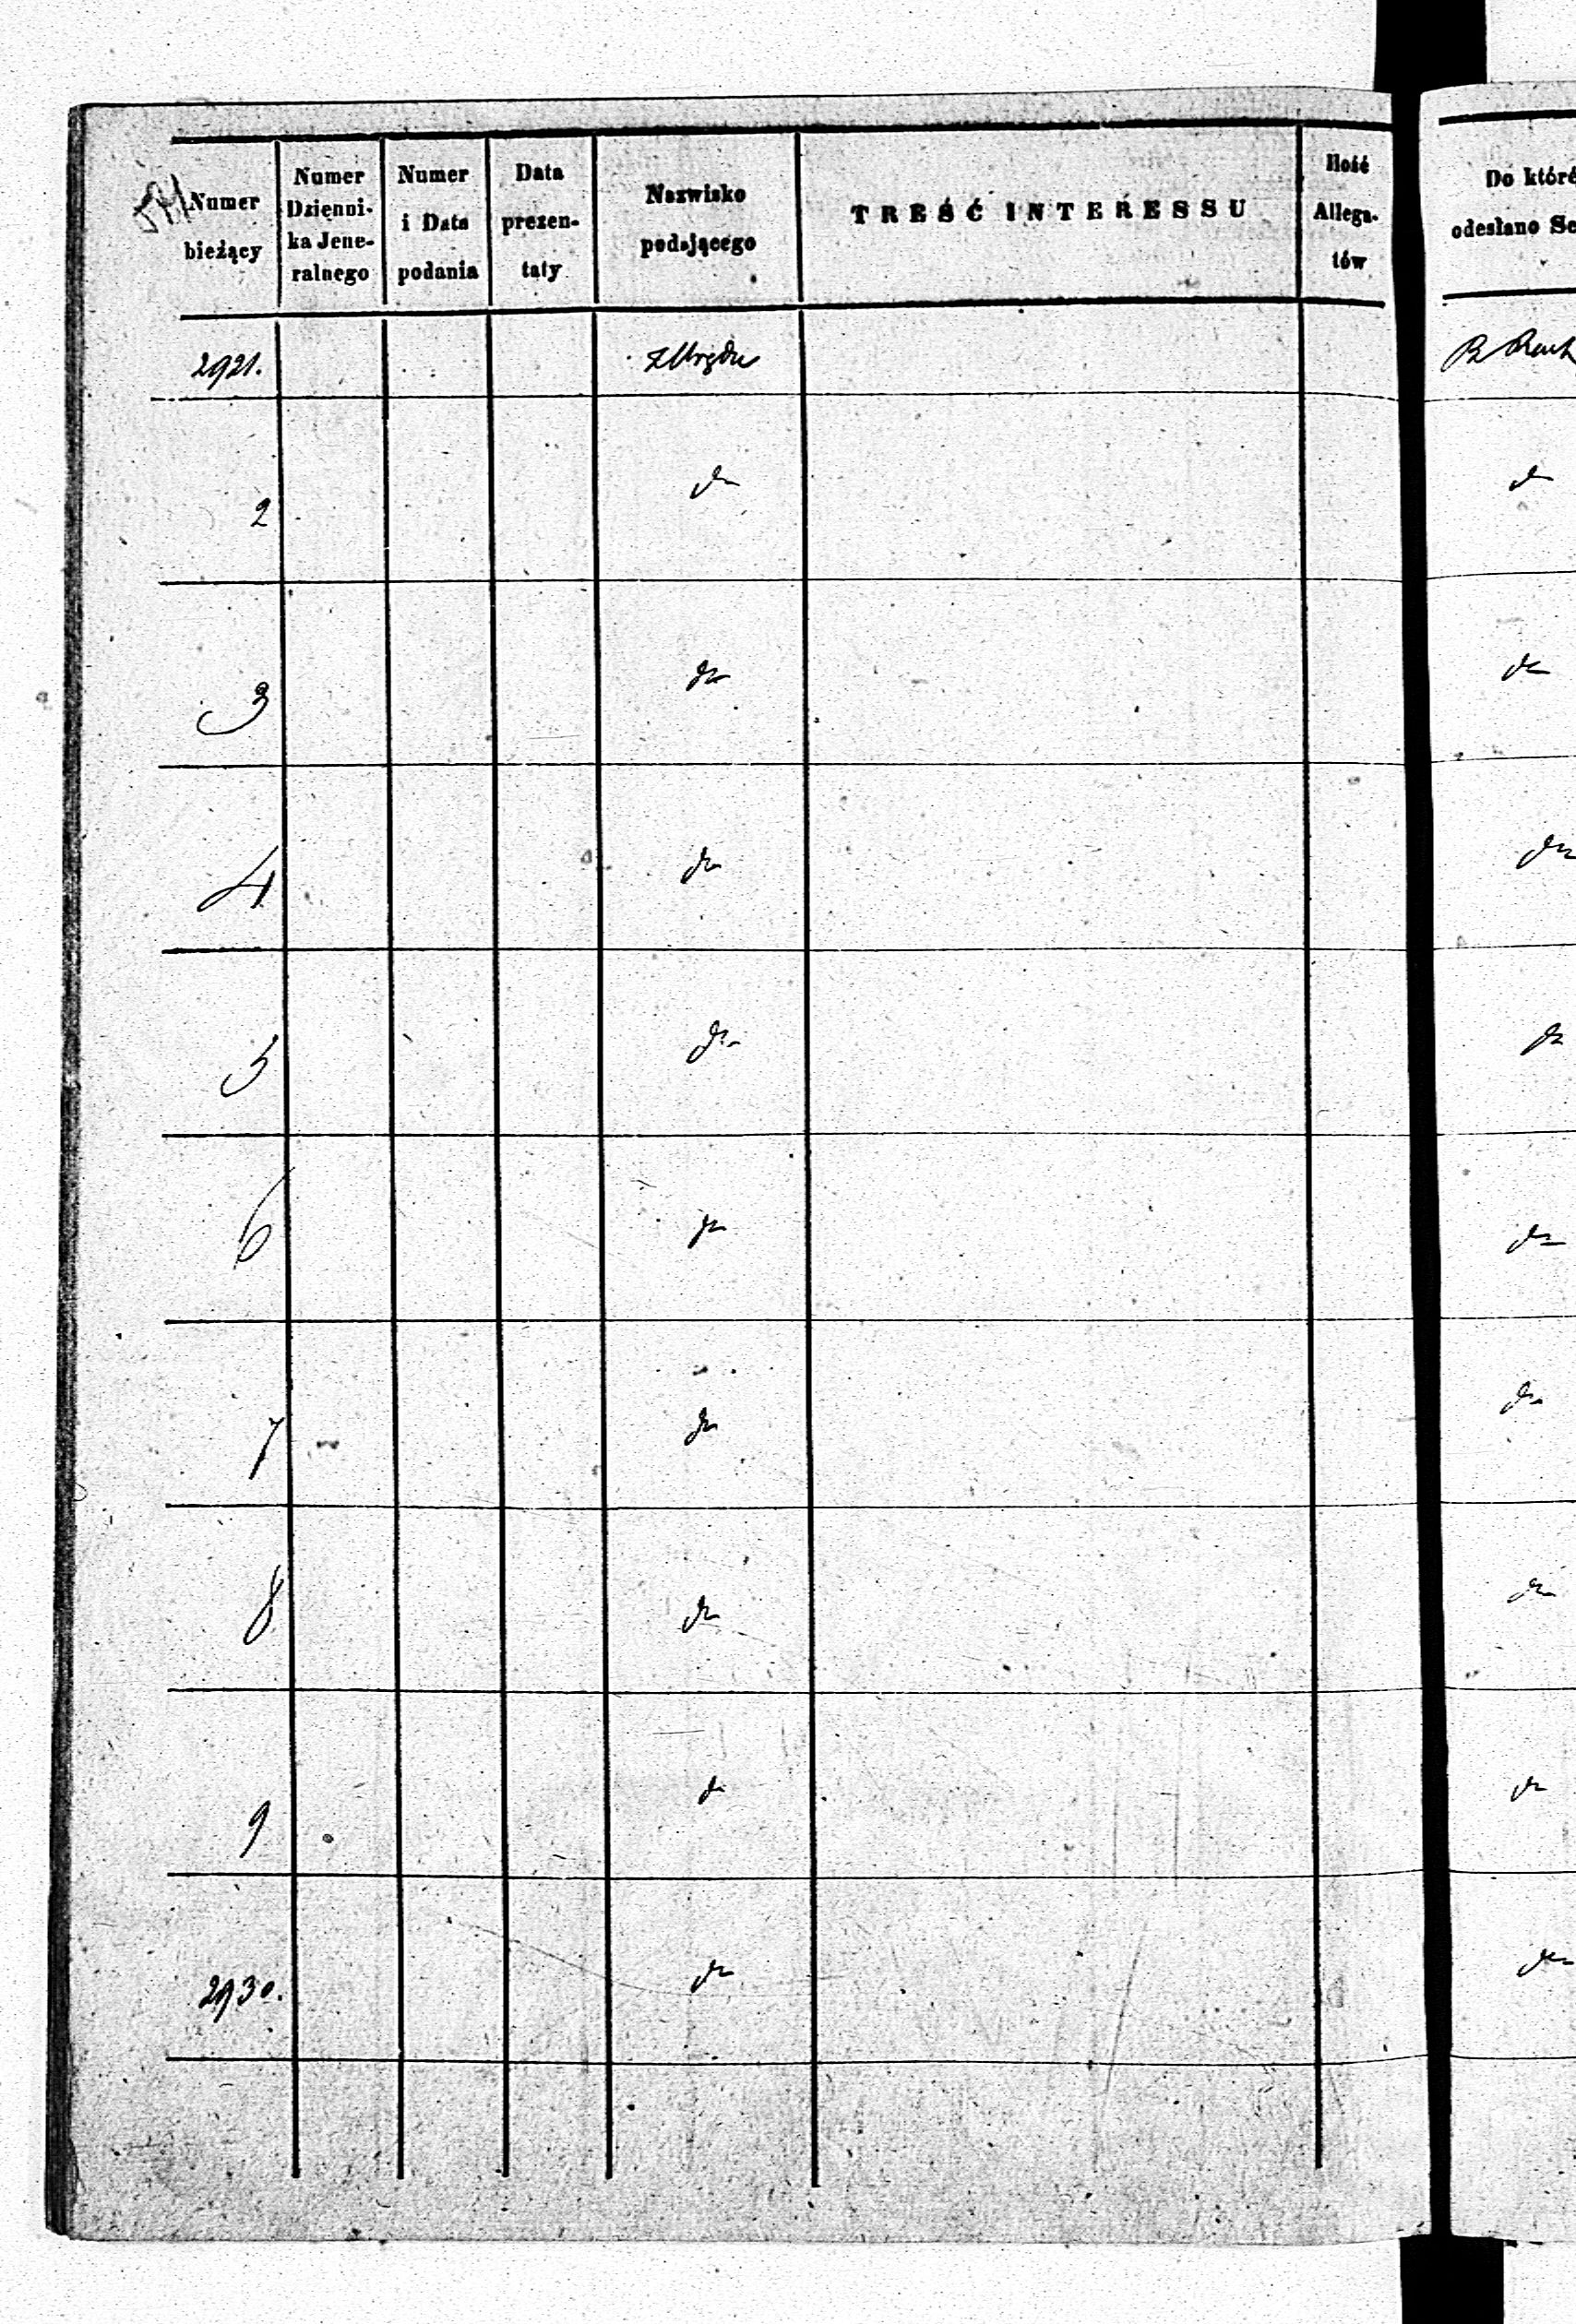 Numer
bieżący
Numer
Dzienni-
ka Jene-
ralnego
Numer
i Data
podania
Data
prezen-
taty
Nazwisko
podającego
TREŚĆ INTERESSU
Ilość
Allega-
tów
Do któré
odesłano Se
2921. z Urzędu
2 do do
3 do do
4 do do
5 do do
6 do do
7 do do
8 do do
9 do do
2930. do do